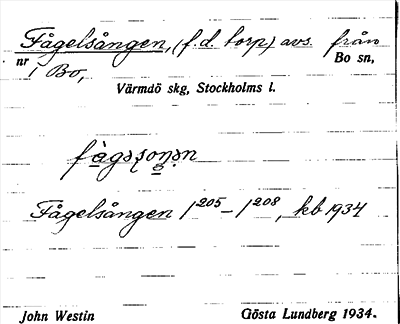 Fågelsången, (f.d. torp) avs. från
nr 1 Bo, Bo sn,
Värmdö skg, Stockholms l.
Fågelsången 1²⁰⁵–1²⁰⁸, kb 1934
John Westin Gösta Lundberg 1934.